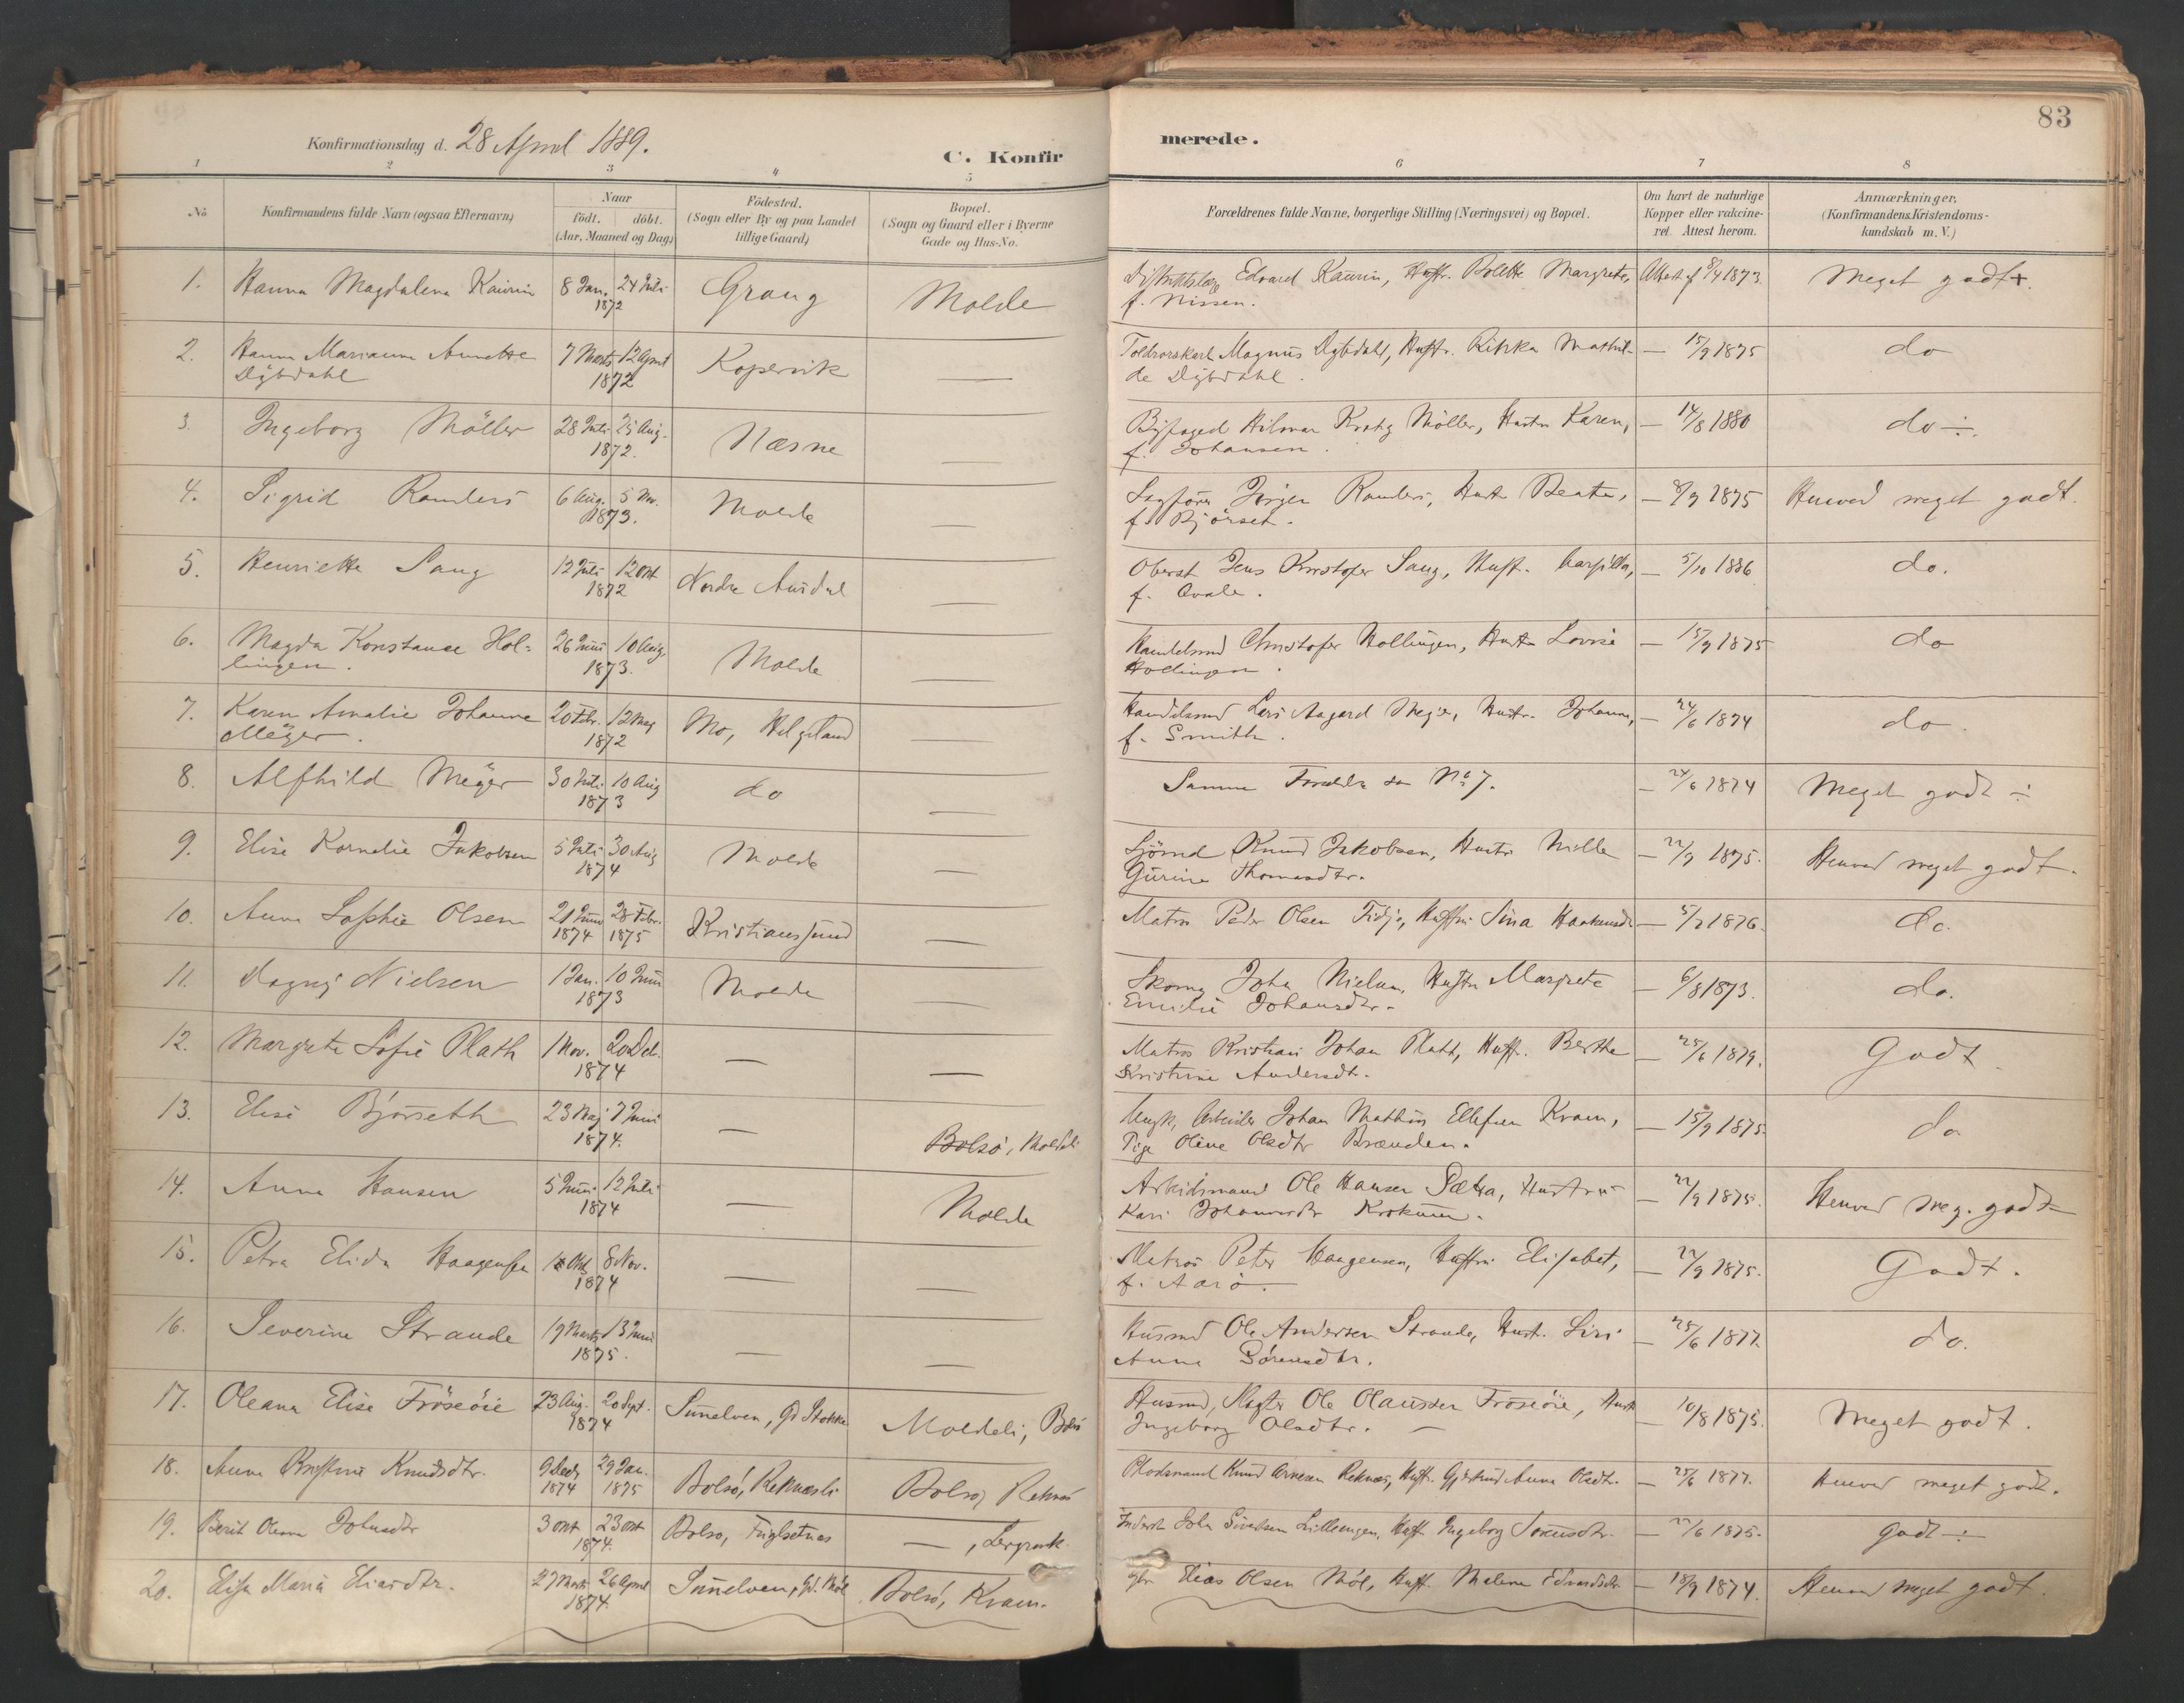 83
Konfirmationsdag d. 28 April 1889.
C. Konfirmerede.
1 2 3 4 5 6 7 8
No
Konfirmandens fulde Navn (ogsaa Efternavn)
Naar
födt. döbt.
(Aar, Maaned og Dag)
Födested.
(Sogn eller By og paa Landet
tillige Gaard)
Bopæl.
(Sogn og Gaard eller i Byerne
Gade og Hus-No.
Forældrenes fulde Navne, borgerlige Stilling (Næringsvei) og Bopæl.
Om havt de naturlige
Kopper eller vakcine-
ret. Attest herom.
Anmærkninger,
(Konfirmandens Kristendoms-
kundskab m. V.)
1. Hanna Magdalena Kaurin 8 Jan. 24 Juli 1872 Grong Molde Distriktslæge Edvard Kaurin, Hustr. Bolette Margrete, f. Nissen. Attest af 8/4 1873. Meget godt +.
2. Hanna Marianne Annette Dybdahl 7 Marts 12 April 1872 Kopervik — Toldrorskarl Magnus Dybdahl, Hustr. Rikka Mathilde Dybdahl. — 15/9 1875 do
3. Ingeborg Möller 28 Juli 25 Aug. 1872. Næsne — Byfoged Hilmar Krohg Möller, Hustru Karen, f. Johansen. — 14/8 1880 do ÷.
4. Sigrid Ranlers 6 Aug. 5 Nov. 1873. Molde — Sagförer Jörgen Ranlers, Hust. Beate, f. Björset. — 8/9 1875 Henved meget godt.
5. Henriette Lang 12 Juli 12 Okt 1872 Nordre Aurdal — Oberst Jens Kristofer Lang, Hust. f. Qvale. — 5/10 1886 do.
6. Magda Konstance Hollingen. 26 Juni 10 Aug. 1873. Molde — Handelsmd Christofer Hollingen, Hustr. Lovise Hollingen. — 15/9 1875 do
7. Karen Amalie Johanne Meyer. 20 Febr. 12 Maj 1872 Mo, Helgeland — Handelsmd Lars Aagard Meyer, Hustr. Johanna, f. Smith. — 24/6 1874 do
8. Alfhild Meyer 30 Juli 10 Aug 1873 do — Samme Forældre som No 7. — 24/6 1874 Meget godt ÷
9. Elise Kornelie Jakobsen 5 Juli 30 Aug 1874 Molde — Sjömd Knud Jakobsen, Hustr. Nille Gurine Thomasdtr. — 22/9 1875. Henved meget godt.
10. Anna Sophie Olsen 21 Juni 1874 28 Febr. 1875 Kristianssund — Matros Peder Olsen, Hustru Sina — 5/7 1876. do.
11. Dagny Nielsen 1 Jan. 10 Juni 1873 Molde — Skomg John Nielsen, Hustru Margrete Emilie Johansdtr. — 6/8 1873. do.
12. Margrete Sofie Plath 1 Nov. 20 Dcb. 1874 — — Matros Kristian Johan Platt, Hustr. Berthe Kristine Andersdtr. — 25/6 1879. Godt
13. Elise Björseth 23 Maj 7 Juni 1874. — Bolsö, Moldeli Ungk, Arbeider Johan Mathias Ellefsen Kram, Pige Oline Olsdtr Brænden. — 15/9 1875. do
14. Anna Hansen 5 Juni 12 Juli 1874 — Molde Arbeidsmand Ole Hansen Sætra, Hustru Kari — 22/9 1875. Henved meg. godt
15. Petra Elida Haagensen Okt 8 Nov. 1874 — — Matros Peter Haagensen, Hustru Elisabet, f. Aarö. — 22/9 1875. Godt.
16. Severine Strande 19 Marts 13 Juni 1875. — — Husmd Ole Andersen Strande, Hust. Siri Anna Sörensdtr. — 25/6 1877. do.
17. Oleana Elise Fröseöie 23 Aug. 20 Sept. 1874 Sunelven, Gd Stokke Moldeli, Bolsö Husmd, Ole Olaussen Fröseöie, Hust. Ingeborg Olsdtr. — 10/8 1875. Meget godt.
18. Anna Kristine Knudsdtr. 9 Decb 1874 29 Jan. 1875 Bolsö, Reknæsli Bolsö, Reknæs Knud Arnesen Reknæs, Hustr. Gjertrud Anna Olsdtr. — 25/6 1877. Henved meget godt.
19. Berit Olena Johnsdtr 3 Okt 23 Okt 1874. Bolsö, Fuglsetnæs —, Lergrovik Inderst John Sivertsen Lilleengen, Hust. Ingeborg — 22/6 1875. Godt ÷
20. Elise Maria Eliasdtr. 27 Marts 26 April 1874. Sunelven, Gd. Möl Bolsö, Kram. Elias Olsen Möl, Hust. Malene Edvardsdtr — 18/9 1874. Henved meget godt.